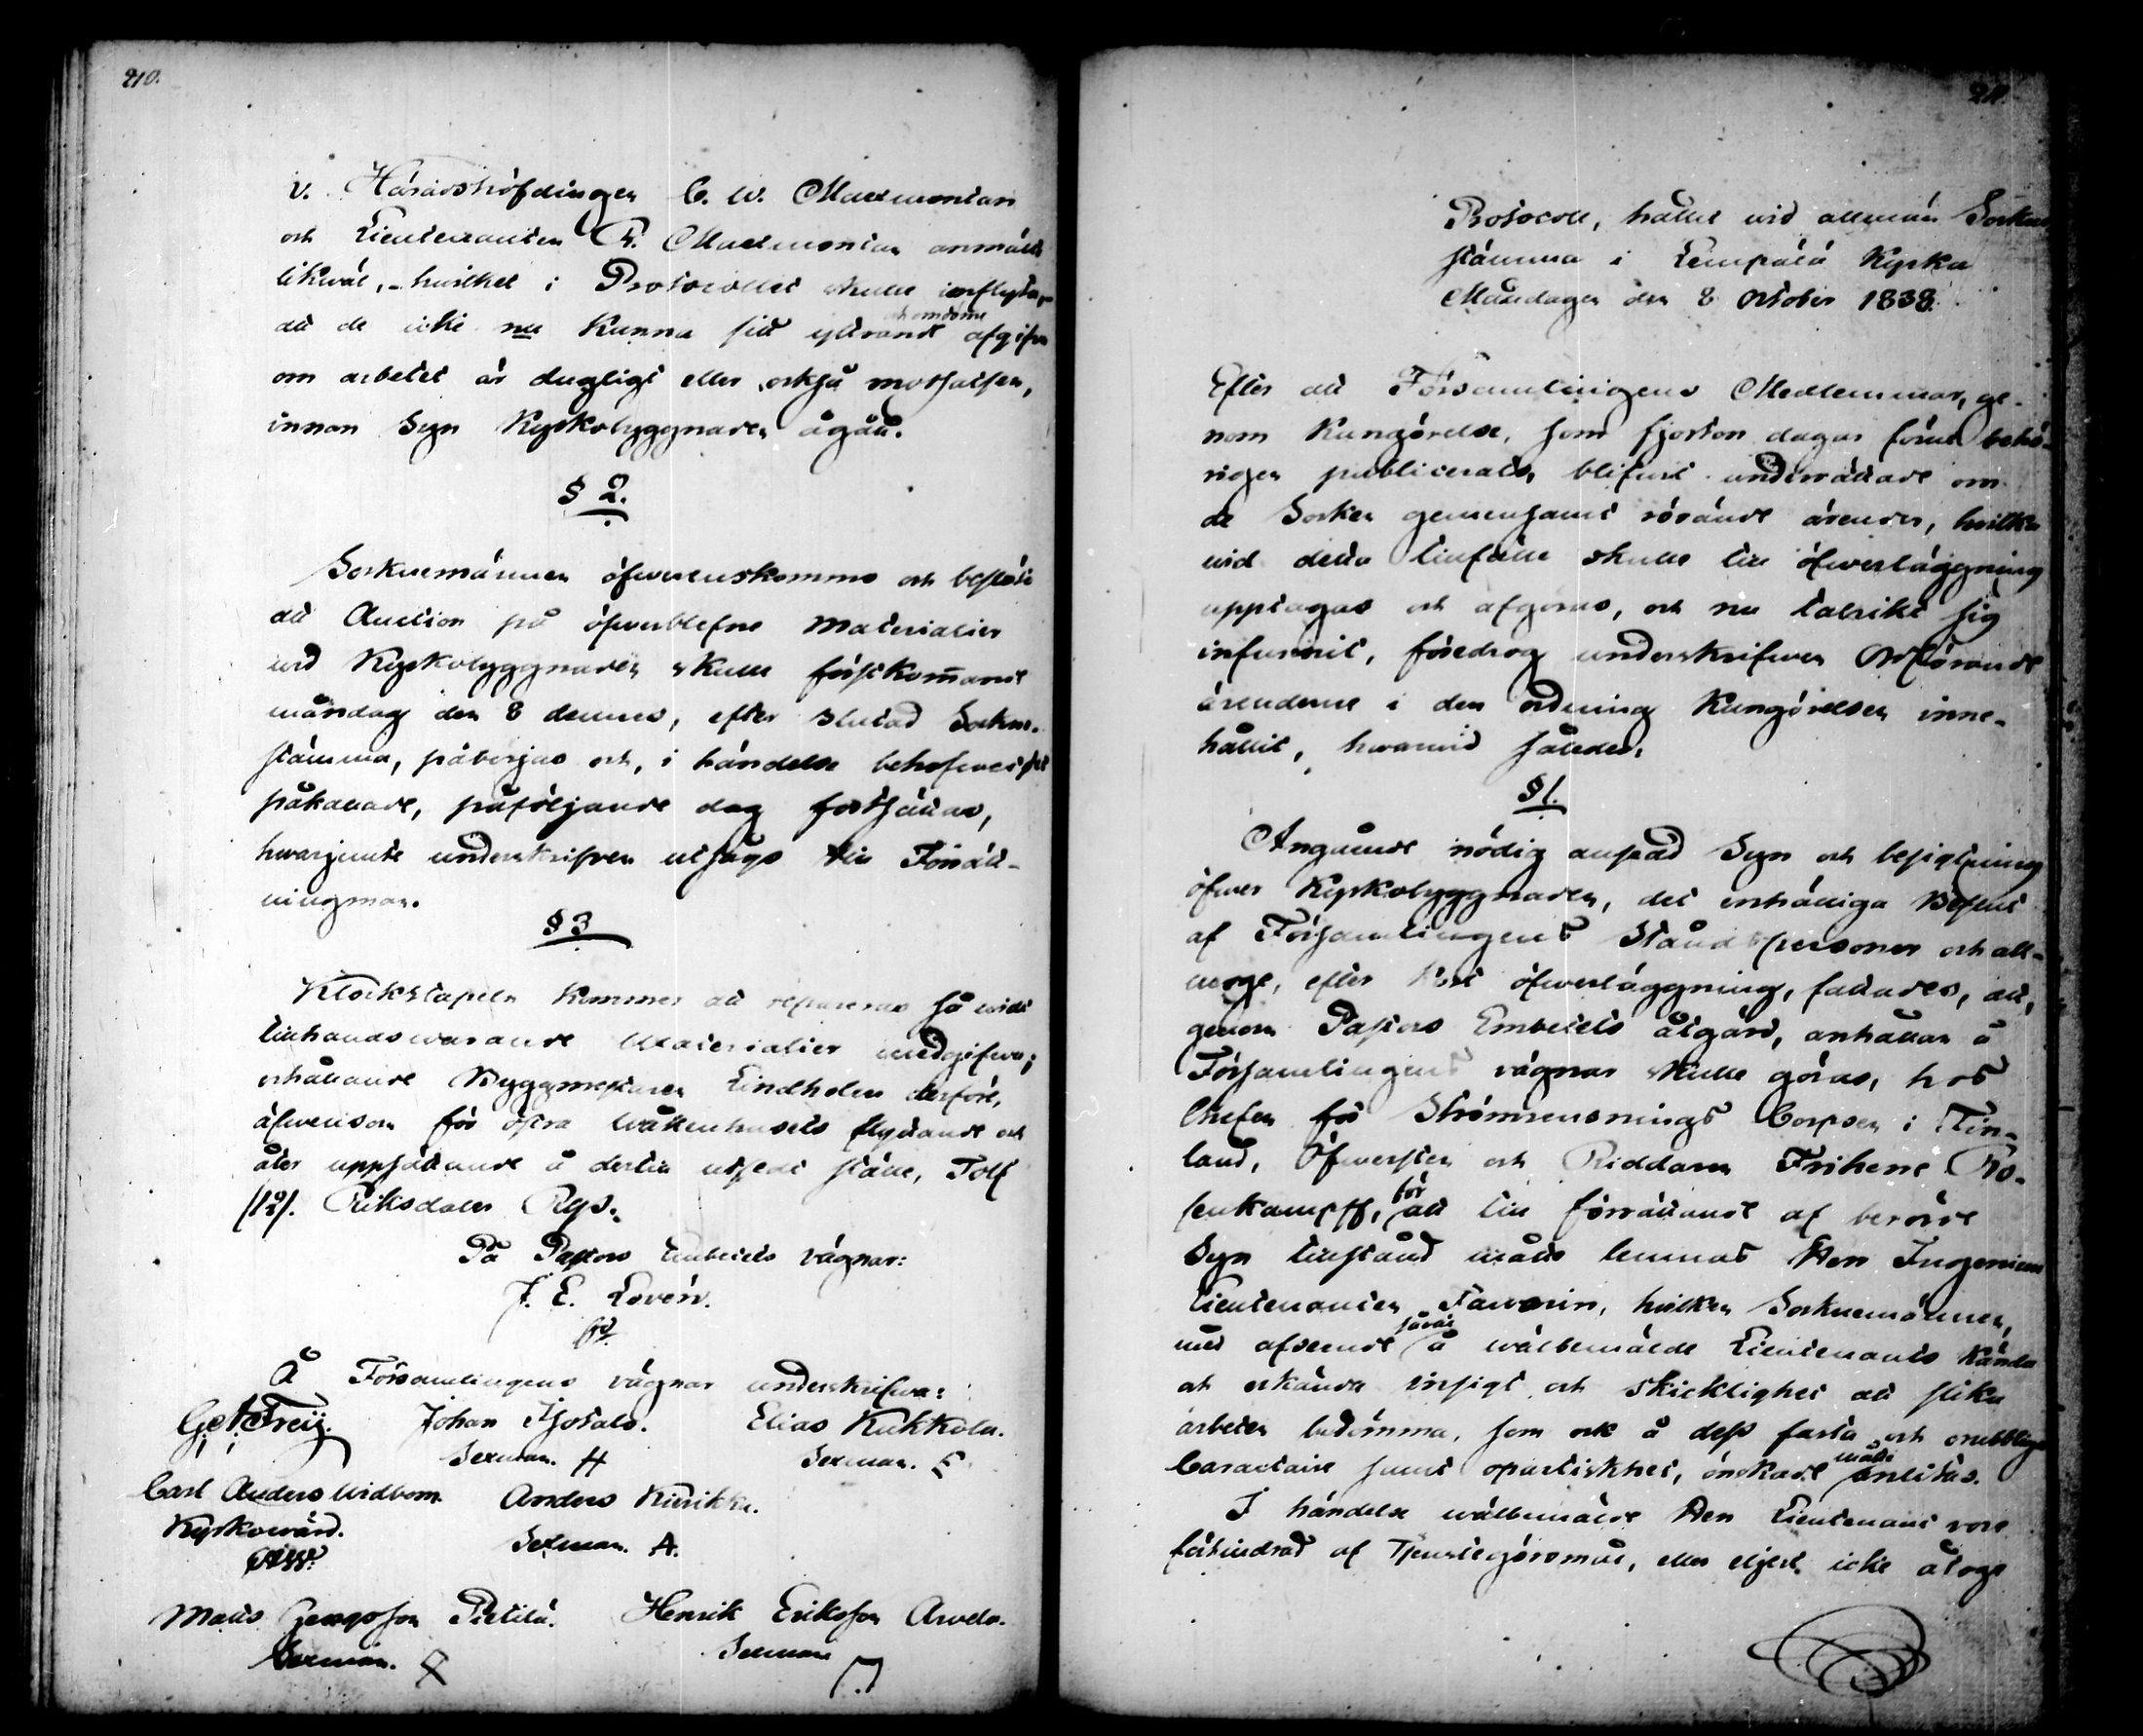 210.
v. Häradshöfdingen C. W. Malmontan
och Lieutenanten R. Malmontan anmälte
likväl, - hvilket i Protocollet skulle inflyta, -
att de icke nu kunna sitt yttrande och omdöme afgifva
om arbetet är dugligt eller ock så motsatsen,
innan Syn Kyrkobyggnaden ågått.
§ 2.
Socknemännen öfwerenskommo och beslöto
att Auction på öfwerblefne Materialier
wid Kyrkobyggnaden skulle förstkom̄ande
måndag den 8 dennes, efter slutad Sockne-
stämma, påbörjas och, i händelse behofwet så
påkallade, påföljande dag fortsättas,
hwarjemte underskrifven utsågs till Förrätt-
ningman.
§ 3
Klockstapeln kommer att repareras så widt
tillhandswarande Materialier medgifwa;
erhållande Byggmästaren Lindholm derföre,
äfwensom för östra Wåkenhusets flyttande och
åter uppsättande å dertill utsedt ställe, Tolf
/12/. Riksdaler Rgs.
På Pastors Embetets vägnar:
J. E. Lovén.
Å Församlingens vägnar underskrifwa:
G. A. Freij. Johan Sjotala. Elias Kukkola.
Sexman. H Sexman. E
Carl Anders Widbom. Anders Kurikka.
Kyrkowärd. Sexman. A.
CAW.
Matts Bengtsson Pietilä. Henrik Eriksson Arvela.
Sexman. Sexman
211.
Protocoll, hållet wid allmän Sockne
stämma i Lempälä Kyrka
Måndagen den 8 October 1838.
Efter att Församlingens Medlemmar, ge-
nom Kungörelse, som fjorton dagar förut behö-
rigen publicerats, blifwit underrättade om
de Socken gemensamt rörande ärender, hvilka
wid detta tillfälle skulle till öfwerläggning
upptagas och afgöras, och nu talrikt sig
infunnit, föredrog underskrifwen Ordförande
ärenderne i den ordning Kungörelsen inne-
hållit, hwarwid således:
§ 1.
Angående nödig ansedd Syn och besigtning
öfwer Kyrkobyggnaden, det enhälliga Beslut
af Församlingens Ståndspersoner och all-
moge, efter kort öfwerläggning, fattades, att,
genom Pastors Embetets åtgärd, anhållan å
Församlingens vägnar skulle göras, hos
Chefen för Strömrensnings Corpsen i Fin-
land, Öfwersten och Riddaren Friherre Ro-
senkampff, för att till förrättande af berörde
Syn tillstånd måtte lemnas Herr Ingenieur
Lieutenanten Faworin, hvilken Socknemännen,
med afseende såväl å wälbemälde Lieutenants kända
och erkända insigt och skicklighet att slika
arbeten bedömma, som ock å dess fasta och orubbliga
Caractaire samt opartiskhet, önskade måtte anlitas.
I händelse wälbemälde Herr Lieutenant vore
förhindrad af Tjenstegöromål, eller eljest icke åtoge